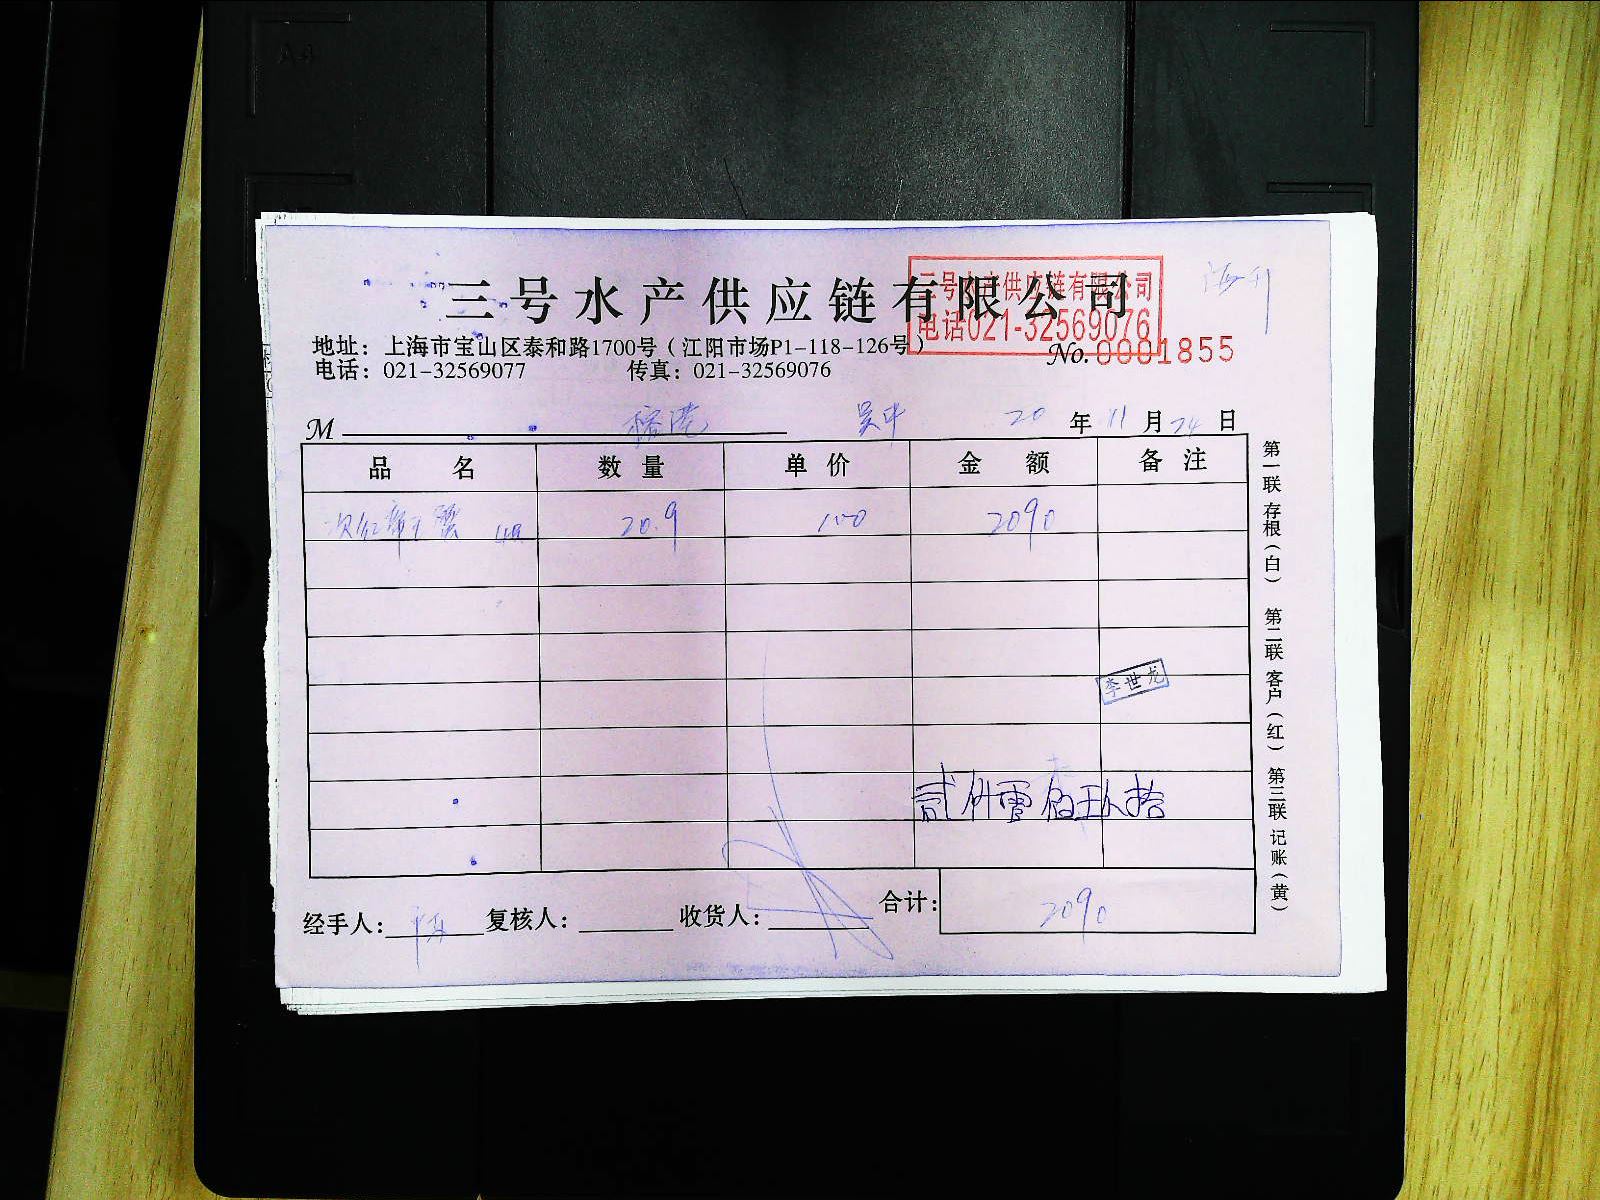 三号水产供应链有限公司
三号水产供应链有限公司
电话021-32569076
地址：上海市宝山区泰和路1700号（江阳市场P1-118-126号）
No.0001855
电话：021-32569077 传真：021-32569076
M 20年11月24日
品名 数量 单价 金额 备注
20.9 100 2090
李世龙
贰仟零佰玖拾
经手人： 复核人： 收货人： 合计：2090
第一联 存根（白） 第二联 客户（红） 第三联 记账（黄）